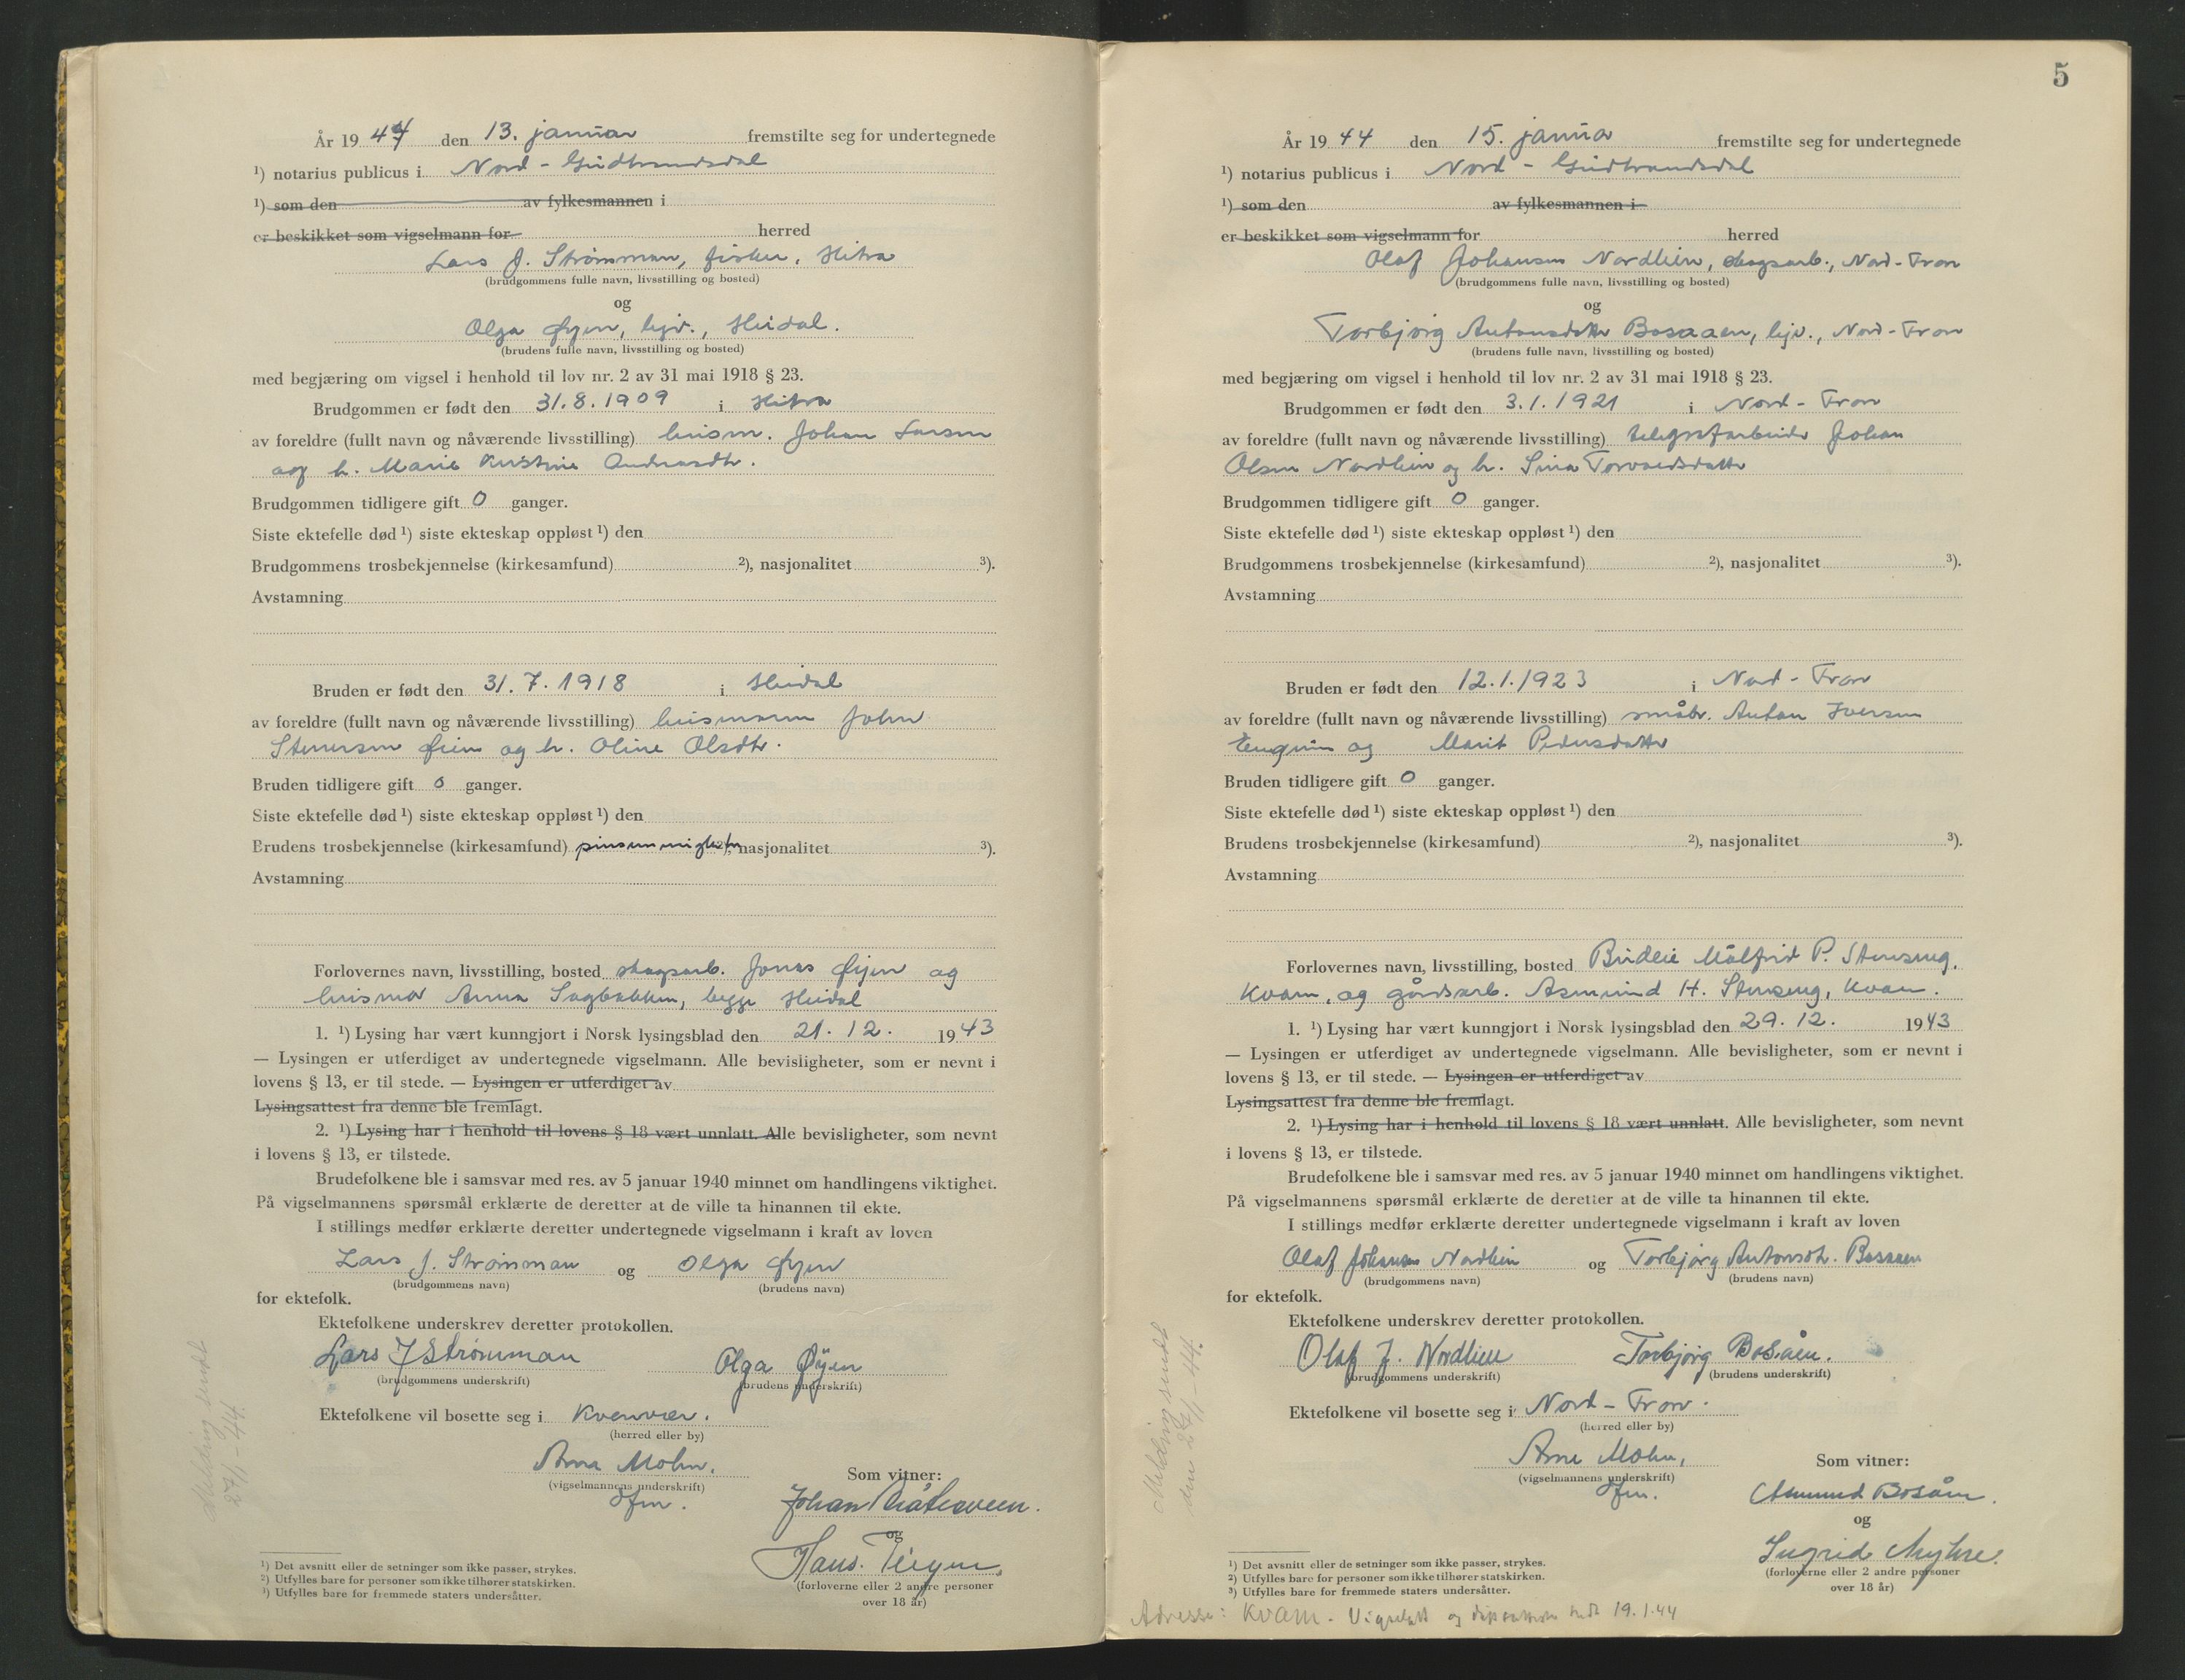 År 1944 den 13. januar fremstilte seg for undertegnede
¹) notarius publicus i Nord - Gudbrandsdal
¹) som den av fylkesmannen i
er beskikket som vigselmann for herred
Lars J. Strømman, fisker, Hitra
(brudgommens fulle navn, livsstilling og bosted)
og
Olga Øyen, hjv., Heidal.
(brudens fulle navn, livsstilling og bosted)
med begjæring om vigsel i henhold til lov nr. 2 av 31 mai 1918 § 23.
Brudgommen er født den 31.8.1909 i Hitra
av foreldre (fullt navn og nåværende livsstilling) husm. Johan Larsen
og h. Marie Kristine Andreasdtr.
Brudgommen tidligere gift 0 ganger.
Siste ektefelle død ¹) siste ekteskap oppløst ¹) den
Brudgommens trosbekjennelse (kirkesamfund) ²), nasjonalitet ³).
Avstamning
Bruden er født den 31.7.1918 i Heidal
av foreldre (fullt navn og nåværende livsstilling) husmann John
Stenersen Øien og h. Oline Olsdtr.
Bruden tidligere gift 0 ganger.
Siste ektefelle død ¹) siste ekteskap oppløst ¹) den
Brudens trosbekjennelse (kirkesamfund) pinsemenigheten ²), nasjonalitet ³).
Avstamning
Forlovernes navn, livsstilling, bosted skogsarb. Jonas Øijen og
husmor Anna Sagbakken, begge Heidal
1. ¹) Lysing har vært kunngjort i Norsk lysingsblad den 21. 12. 1943
— Lysingen er utferdiget av undertegnede vigselmann. Alle bevisligheter, som er nevnt i
lovens § 13, er til stede. — Lysingen er utferdiget av
Lysingsattest fra denne ble fremlagt.
2. ¹) Lysing har i henhold til lovens § 18 vært unnlatt. Alle bevisligheter, som nevnt
i lovens § 13, er tilstede.
Brudefolkene ble i samsvar med res. av 5 januar 1940 minnet om handlingens viktighet.
På vigselmannens spørsmål erklærte de deretter at de ville ta hinannen til ekte.
I stillings medfør erklærte deretter undertegnede vigselmann i kraft av loven
Lars J. Strømman og Olga Øyen
(brudgommens navn) (brudens navn)
for ektefolk.
Ektefolkene underskrev deretter protokollen.
Lars J Strømman Olga Øyen
(brudgommens underskrift) (brudens underskrift)
Ektefolkene vil bosette seg i Kvenvær.
(herred eller by)
Arne Mohn.
(vigselmannens underskrift)
dfm.
Som vitner:
Johan
og
Hans Teigen
(forloverne eller 2 andre personer
over 18 år)
Melding sendt
27/1-44.
¹) Det avsnitt eller de setninger som ikke passer, strykes.
²) Utfylles bare for personer som ikke tilhører statskirken.
³) Utfylles bare for fremmede staters undersåtter.
5
År 1944 den 15. janua fremstilte seg for undertegnede
¹) notarius publicus i Nord - Gudbrandsdal
¹) som den av fylkesmannen i
er beskikket som vigselmann for herred
Olaf Johansen Nordlien, skogsarb., Nord-Fron
(brudgommens fulle navn, livsstilling og bosted)
og
Torbjørg Antonsdatter Bosaaen, hjv., Nord-Fron
(brudens fulle navn, livsstilling og bosted)
med begjæring om vigsel i henhold til lov nr. 2 av 31 mai 1918 § 23.
Brudgommen er født den 3.1.1921 i Nord-Fron
av foreldre (fullt navn og nåværende livsstilling) telegrafarbeider Johan
Olsen Nordlien og h. Sina Torvaldsdatter
Brudgommen tidligere gift 0 ganger.
Siste ektefelle død ¹) siste ekteskap oppløst ¹) den
Brudgommens trosbekjennelse (kirkesamfund) ²), nasjonalitet ³).
Avstamning
Bruden er født den 12.1.1923 i Nord-Fron
av foreldre (fullt navn og nåværende livsstilling) småbr. Anton Iversen
og Marit Pedersdatter
Bruden tidligere gift 0 ganger.
Siste ektefelle død ¹) siste ekteskap oppløst ¹) den
Brudens trosbekjennelse (kirkesamfund) ²), nasjonalitet ³).
Avstamning
Forlovernes navn, livsstilling, bosted Budeie Målfrid P. Stenseng,
Kvam, og gårdsarb. Asmund H. Stenseng, Kvam.
1. ¹) Lysing har vært kunngjort i Norsk lysingsblad den 29. 12. 1943
— Lysingen er utferdiget av undertegnede vigselmann. Alle bevisligheter, som er nevnt i
lovens § 13, er til stede. — Lysingen er utferdiget av
Lysingsattest fra denne ble fremlagt.
2. ¹) Lysing har i henhold til lovens § 18 vært unnlatt. Alle bevisligheter, som nevnt
i lovens § 13, er tilstede.
Brudefolkene ble i samsvar med res. av 5 januar 1940 minnet om handlingens viktighet.
På vigselmannens spørsmål erklærte de deretter at de ville ta hinannen til ekte.
I stillings medfør erklærte deretter undertegnede vigselmann i kraft av loven
Olaf Johansen Nordlien og Torbjørg Antonsdt. Bosaaen
(brudgommens navn) (brudens navn)
for ektefolk.
Ektefolkene underskrev deretter protokollen.
Olaf J. Nordlien Torbjørg Bosåen.
(brudgommens underskrift) (brudens underskrift)
Ektefolkene vil bosette seg i Nord-Fron.
(herred eller by)
Arne Mohn,
(vigselmannens underskrift)
dfm.
Som vitner:
Amund Bosåen.
og
Ingrid Myhre.
(forloverne eller 2 andre personer
over 18 år)
Melding sendt
den 27/1-44.
¹) Det avsnitt eller de setninger som ikke passer, strykes.
²) Utfylles bare for personer som ikke tilhører statskirken.
³) Utfylles bare for fremmede staters undersåtter.
Adresse: Kvam - Vigselatt og sendt 19.1.44